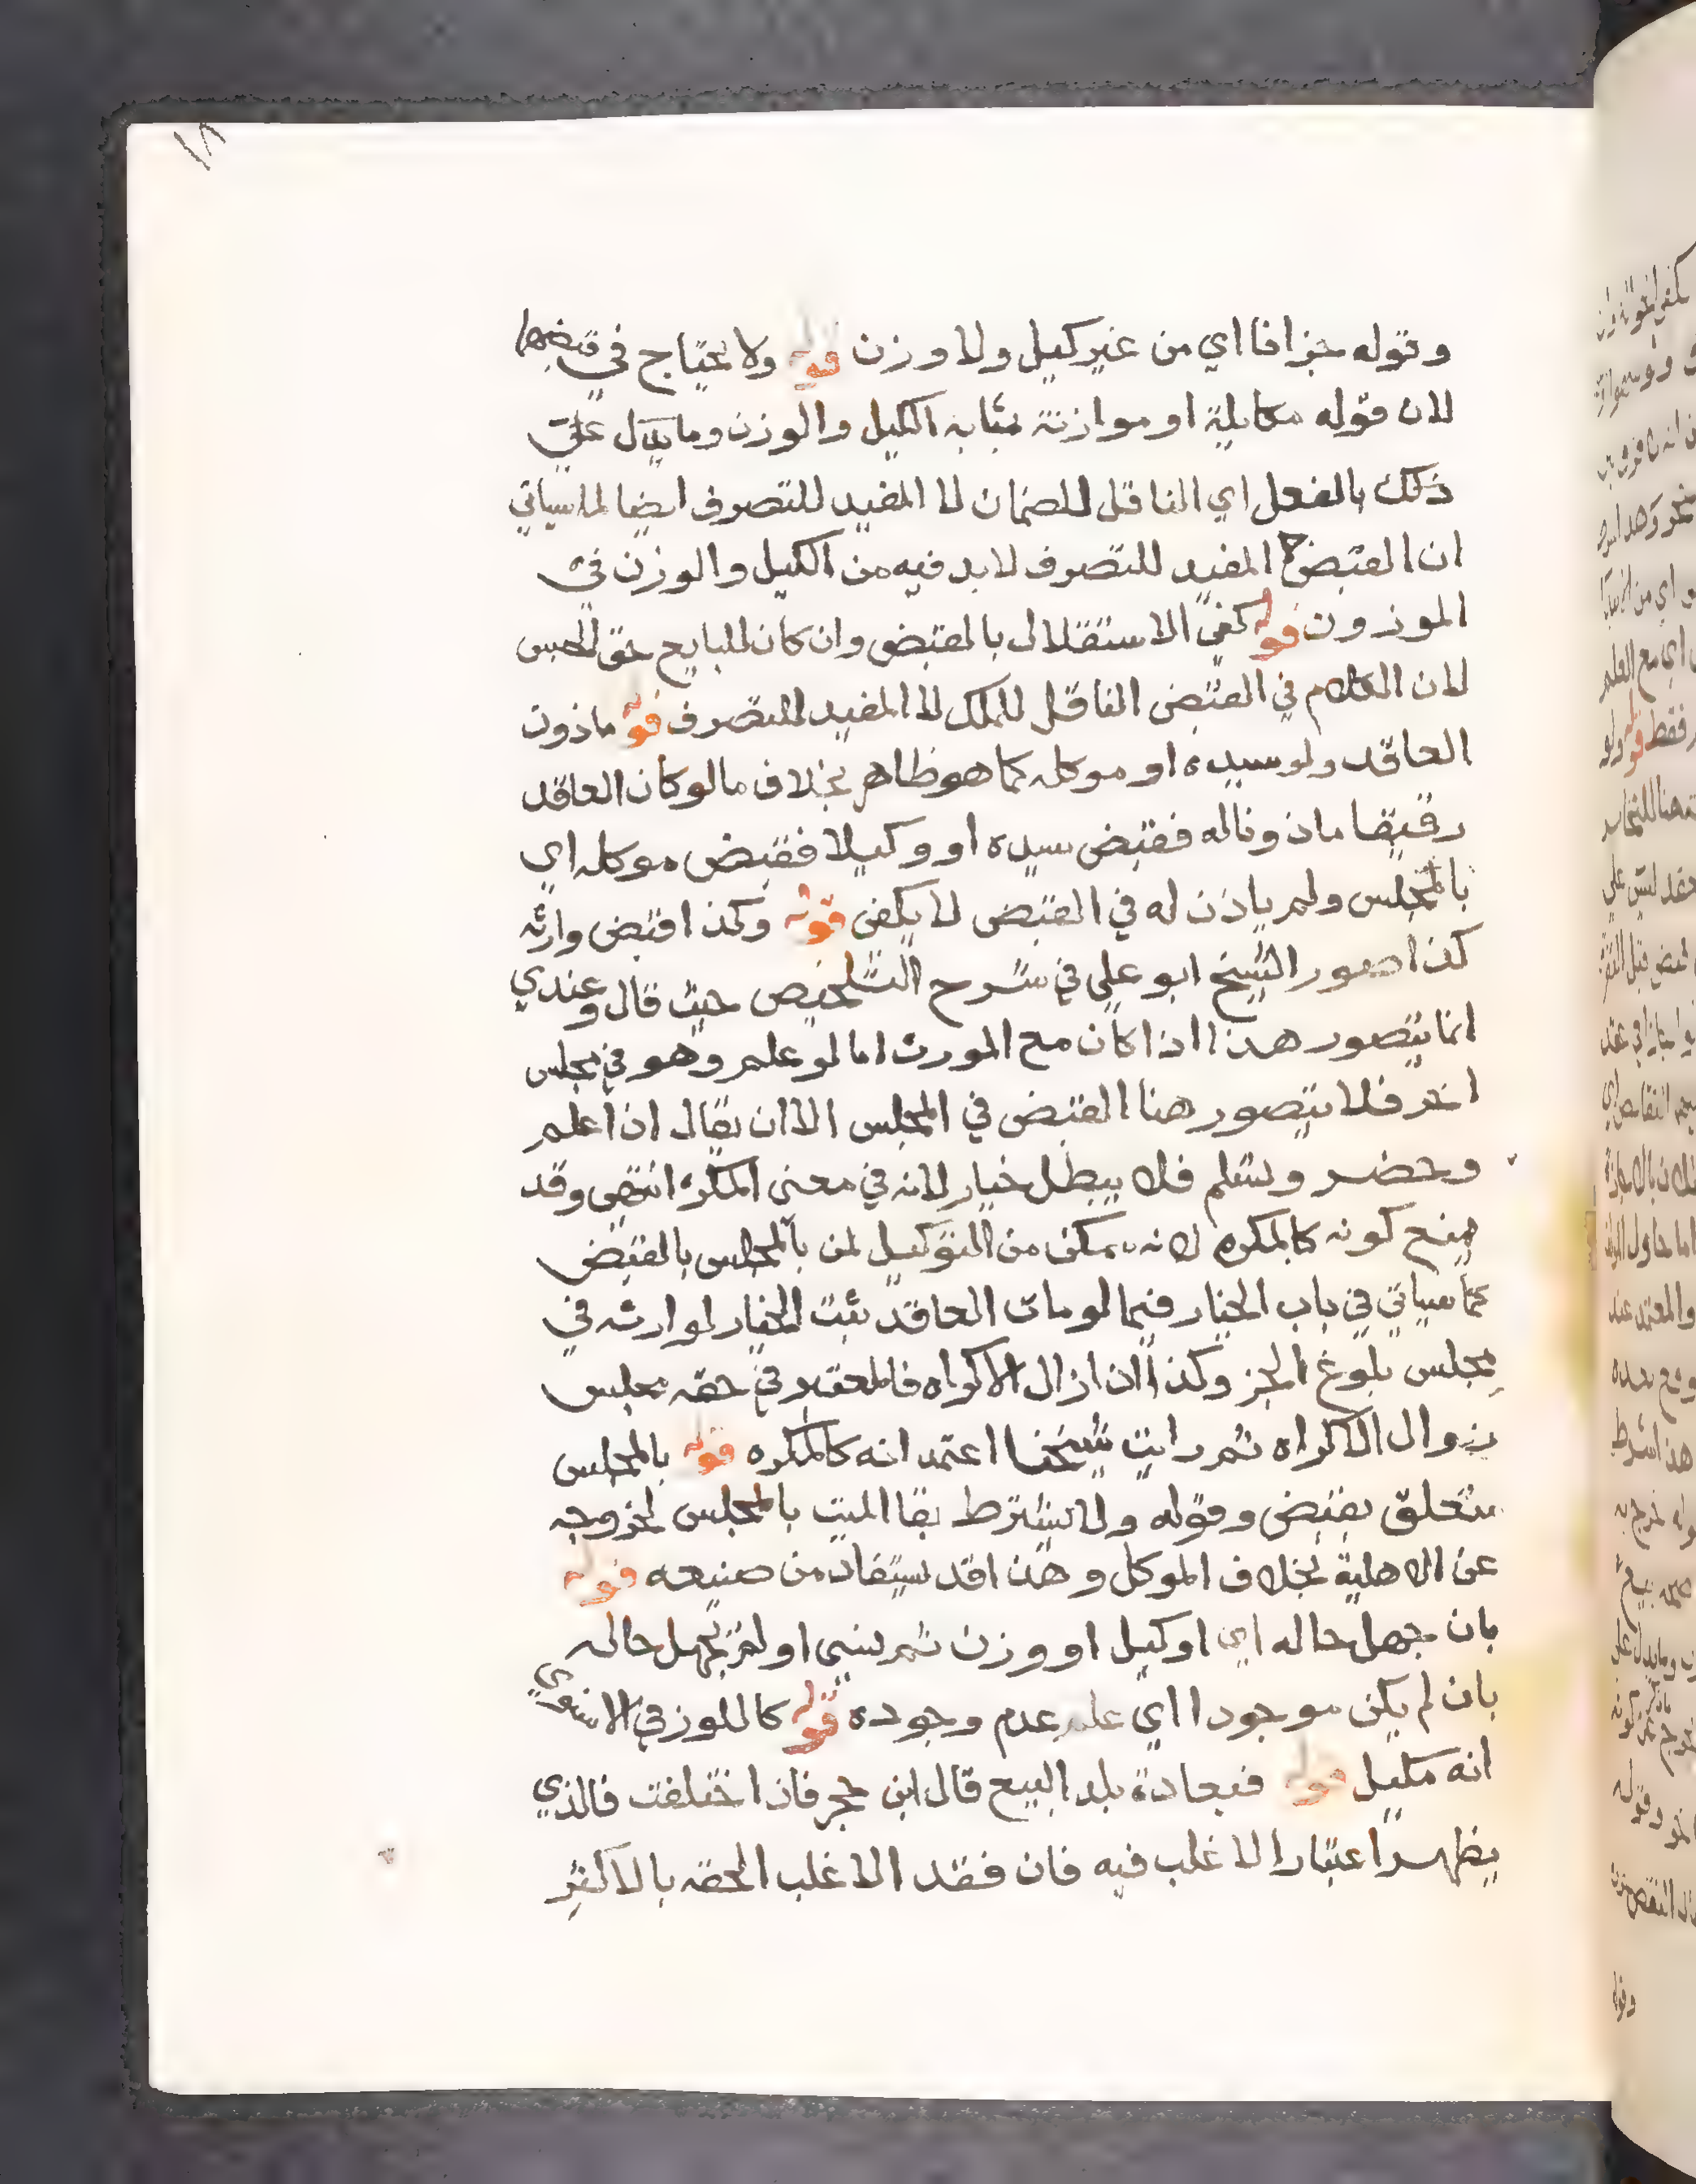 ١٨
وقوله جزافا اي من غير كيل ولا وزن قوله ولا يحتاج في قبضها
لان قوله مكايلة او موازنة بمثابة الكيل والوزن وما يدل على
ذلك بالفعل اي الناقل للضمان لا المفيد للتصرف ايضا لما سياتي
ان القبض المفيد للتصرف لا بد فيه من الكيل والوزن في
الموزون قوله كفى الاستقلال بالقبض وان كان للبايع حق الحبس
لان الكلام في القبض الناقل للملك لا المفيد للتصرف قوله ماذون
العاقد ولو سيده او موكله كما هو ظاهر بخلاف ما لو كان العاقد
رقيقا ماذونا له فقبض سيده او وكيلا فقبض موكله اي
بالمجلس ولم ياذن له في القبض لا يكفى قوله وكذا قبض وارثه
كذا صور الشيخ ابو علي في شرح التلخيص حيث قال وعندي
انما يتصور هذا اذا كان مع المورث اما لو علم وهو في مجلس
اخر فلا يتصور هنا القبض في المجلس الا ان يقال اذا علم
وحضر وتسلم فلا يبطل خيار لانه في معنى المكره انتهى وقد
يمنع كونه كالمكره لانه يمكن من التوكيل لمن بالمجلس بالقبض
كما سياتي في باب الخيار فيما لو مات العاقد ثبت الخيار لوارثه في
مجلس بلوغ الخبر وكذا اذا زال الاكراه فالمعتبر في حقه مجلس
زوال الاكراه ثم رايت شيخنا اعتمد انه كالمكره قوله بالمجلس
متعلق بقبض وقوله ولا يشترط بقا الميت بالمجلس لخروجه
عن الاهلية بخلاف الموكل وهذا قد يستفاد من صنيعه قوله
بان جهل حاله اي اوكيل او وزن ثم نسي او لم يجهل حاله
بان لم يكن موجودا اي علم عدم وجوده قوله كاللوز في الاسنوي
انه مكيل قوله فبعادة بلد البيع قال ابن حجر فاذا اختلفت فالذي
يظهر اعتبار الاغلب فيه فان فقد الاغلب الحقه بالاكثر